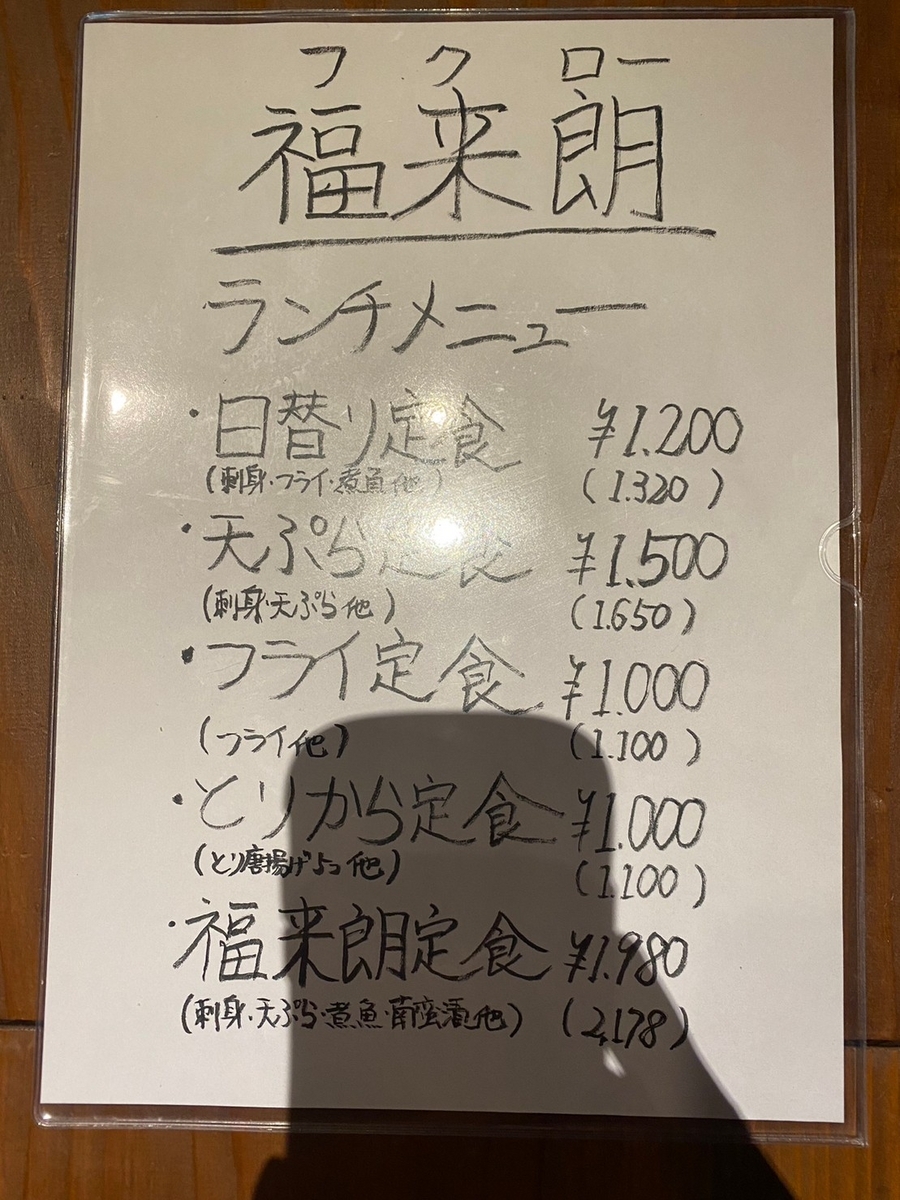 フクロー
福来朗
ランチメニュー
・日替り定食 ¥1.200
(刺身・フライ・煮魚他) (1.320)
・天ぷら定食 ¥1.500
(刺身・天ぷら他) (1.650)
・フライ定食 ¥1.000
(フライ他) (1.100)
・とりから定食 ¥1.000
(とり唐揚げ5コ他) (1.100)
・福来朗定食 ¥1.980
(刺身・天ぷら・煮魚・南蛮漬他) (2,178)